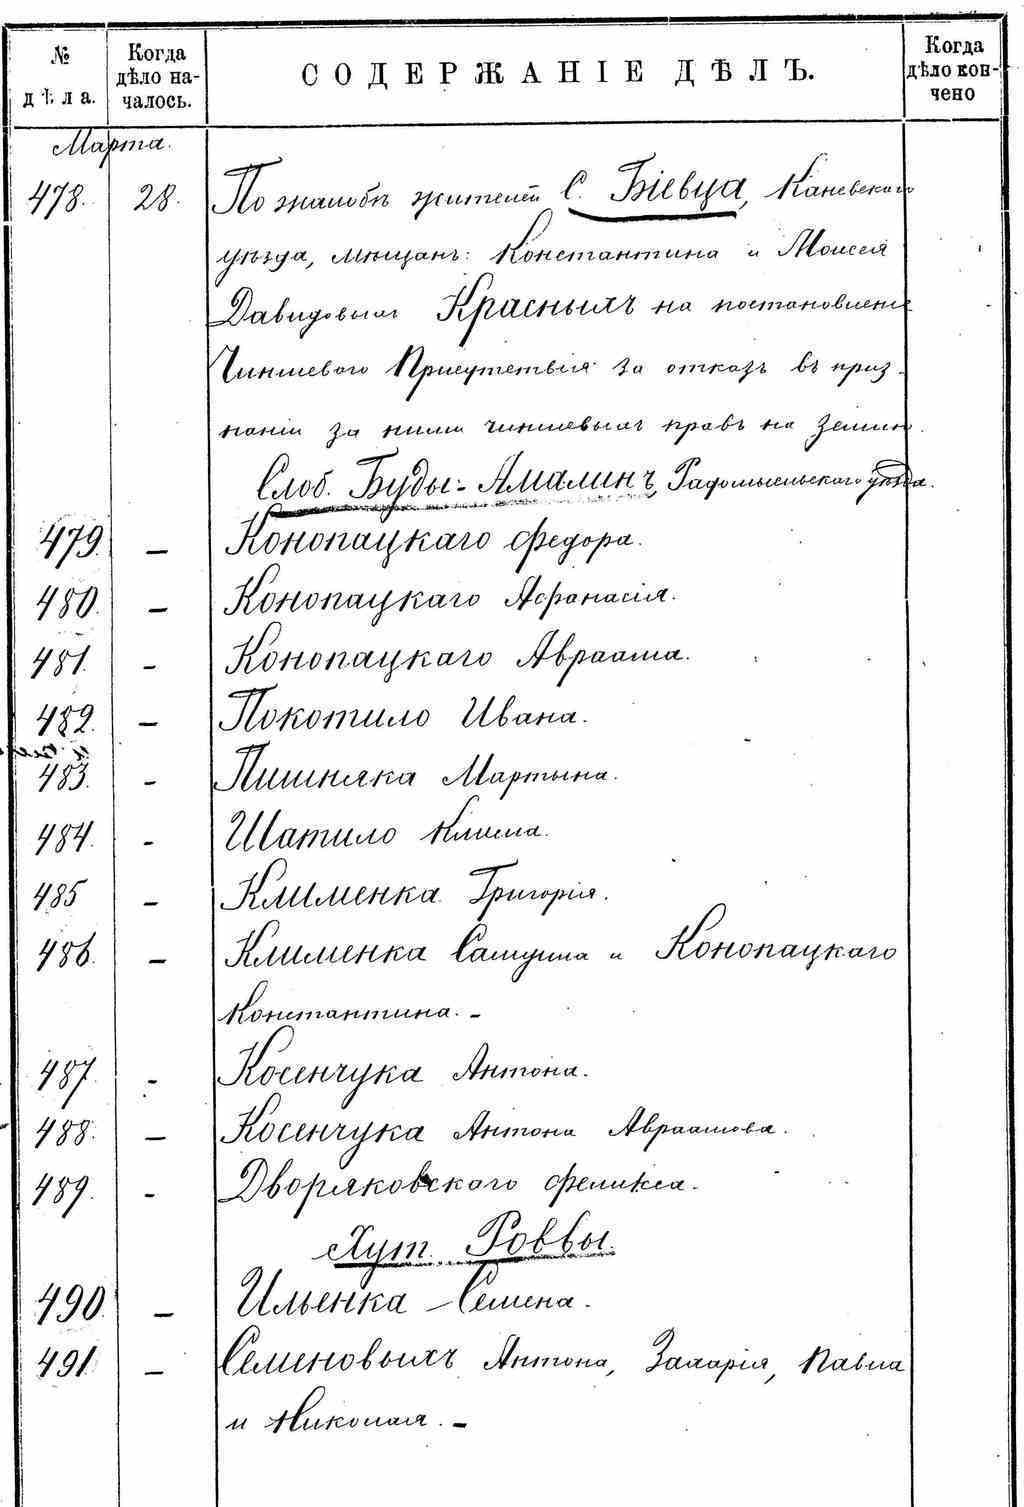 № дѣла.
Когда дѣло на-чалось.
СОДЕРЖАНІЕ ДѢЛЪ.
Когда дѣло кон-чено
Марта.
478. 28. По жалобѣ жителей С. Бiевца, Каневскаго
уѣзда, мѣщанъ: Константина и Моисея
Давидовыхъ Красныхъ на постановленіе
Чиншевого Присутствія за отказъ въ приз-
наніи за ними чиншевыхъ правъ на землю.
Слоб. Буды-Амалинъ, Радомысльскаго уѣзда.
479. — Конопацкаго Федора.
480. — Конопацкаго Афанасія.
481. — Конопацкаго Авраама.
482. — Покотило Ивана.
483. — Пишняка Мартына.
484. — Шатило Клима.
485 — Клименка Григорія.
486. — Клименка Самуила и Конопацкаго
Константина. –
487. — Косенчука Антона.
488. — Косенчука Антона Авраамова.
489. — Дворяковскаго Феликса.
Хут. Роввы.
490. — Ильенка Семена.
491. — Семеновыхъ Антона, Захарія, Павла
и Николая. –